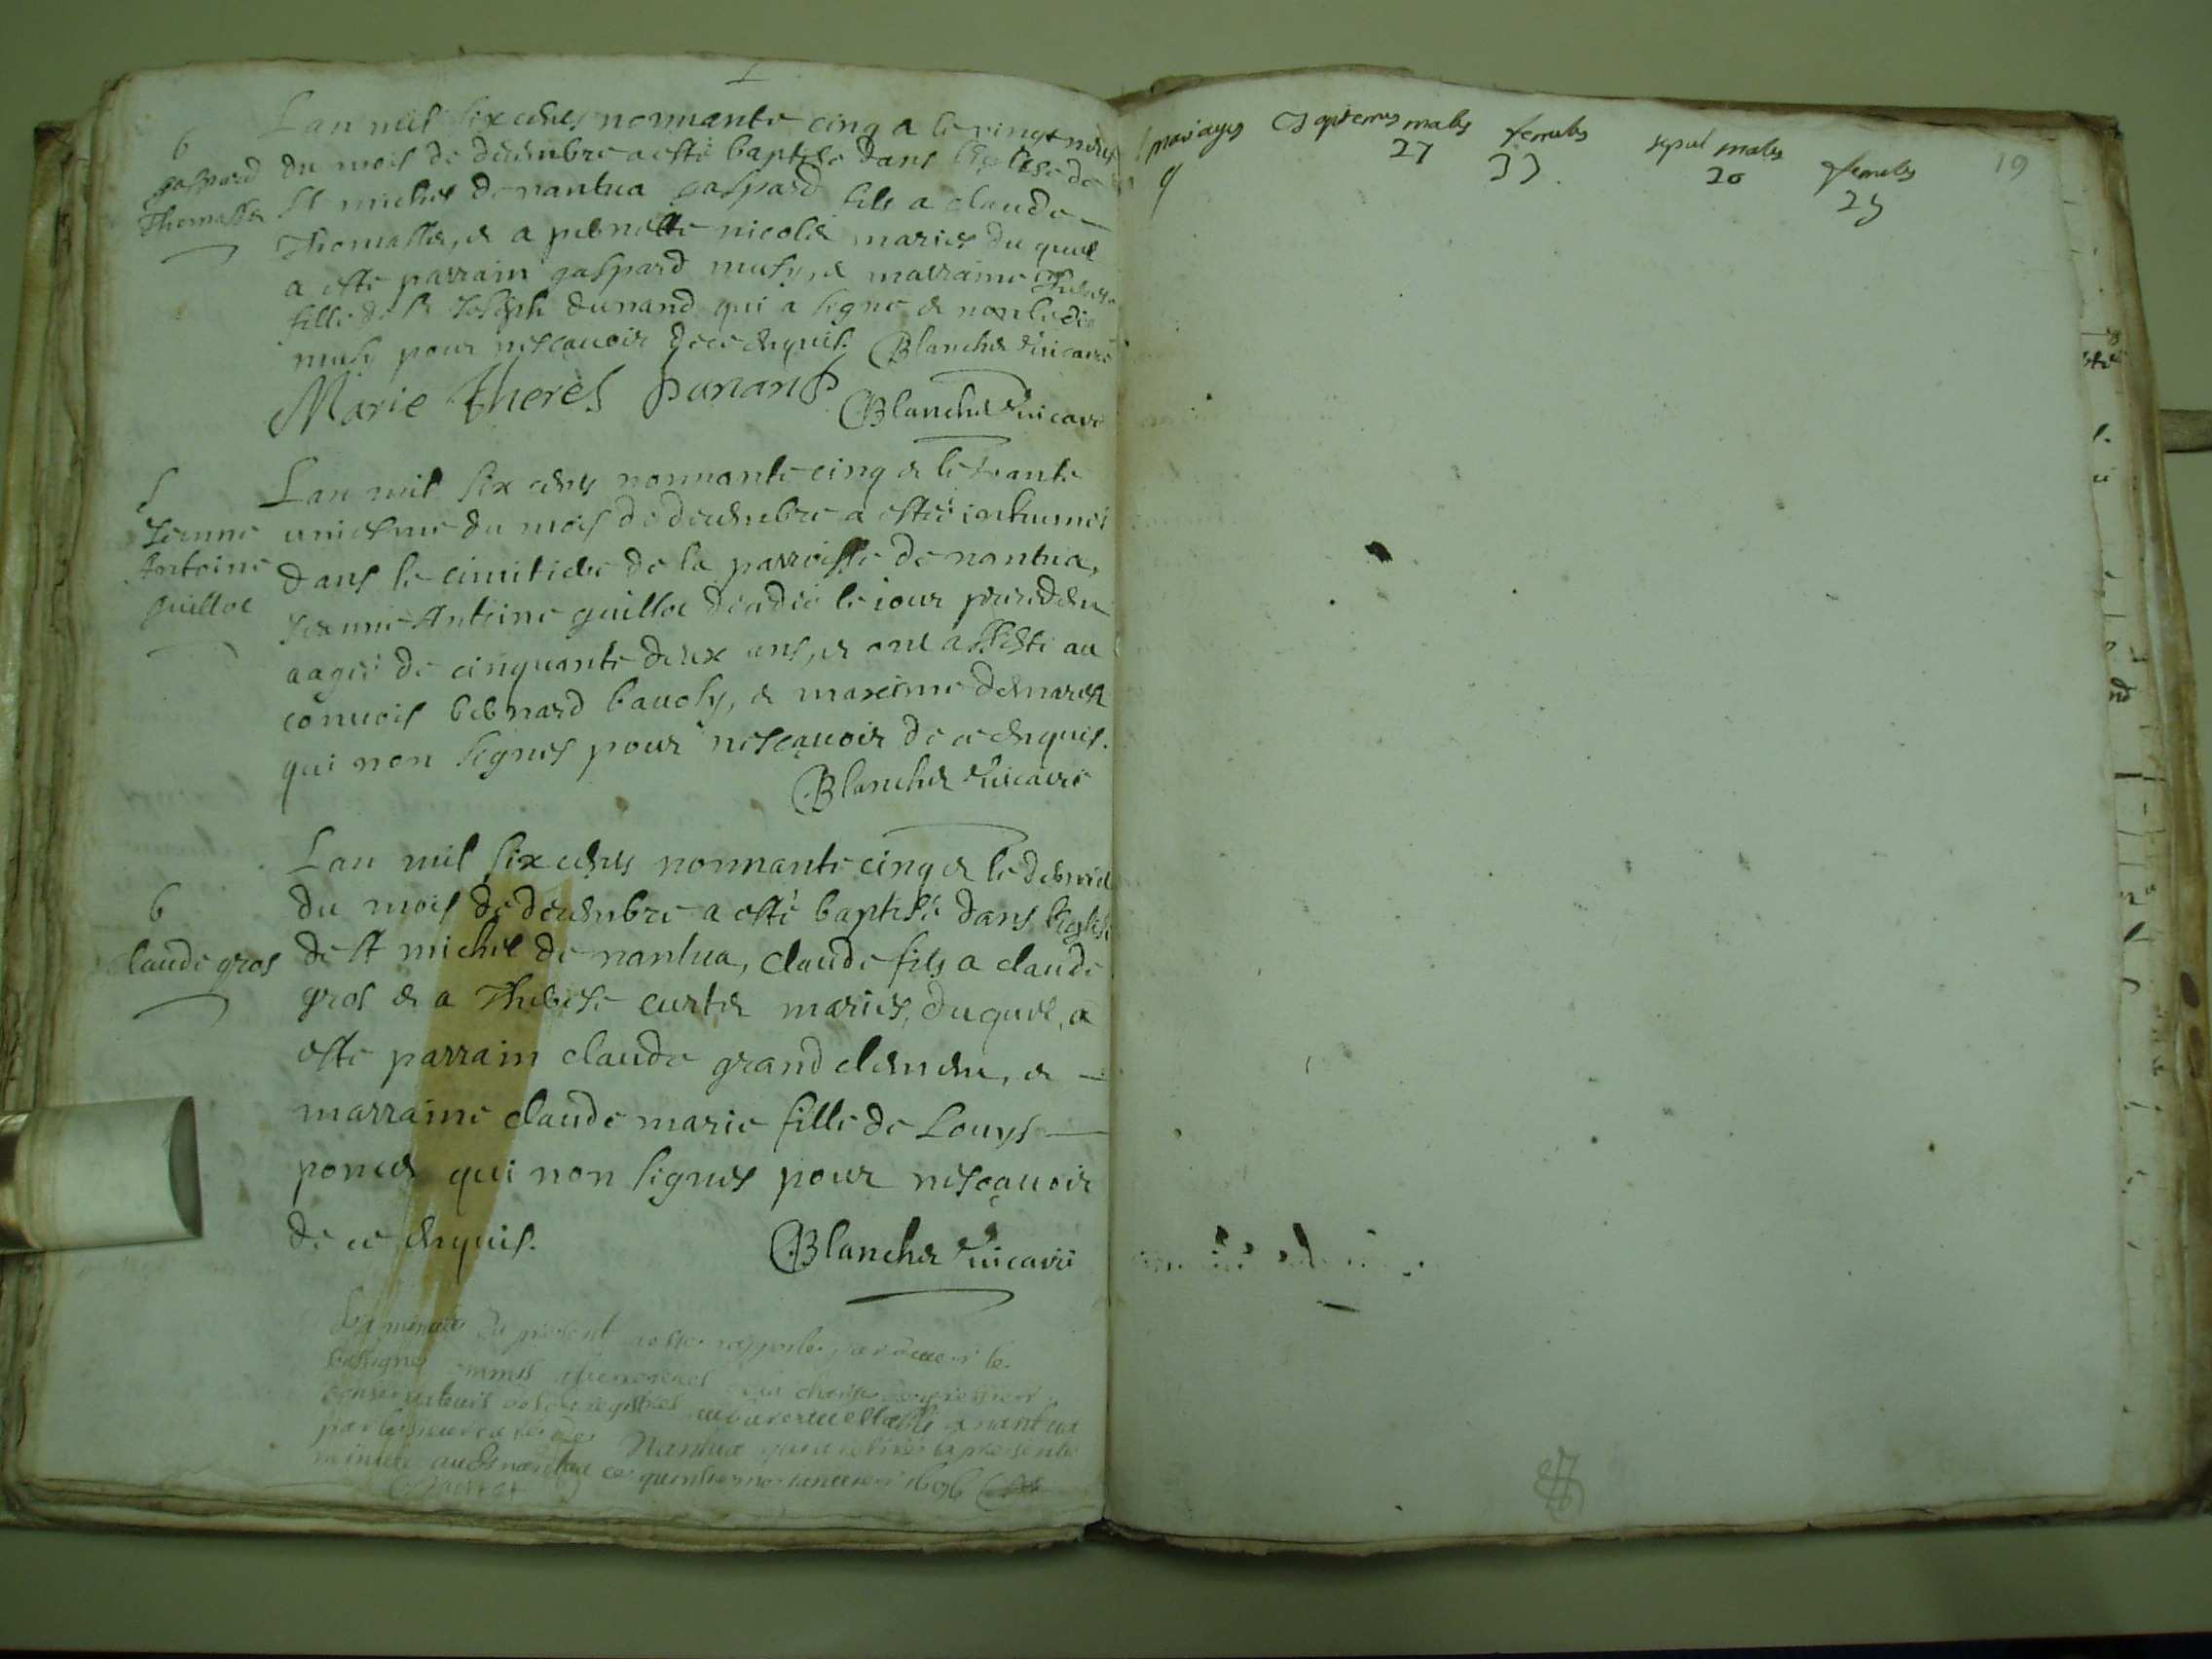 Lan mil six cents nonnante cinq & le vingt neuf
b
gaspard
Thomasset
du mois de decembre a esté baptisé dans leglise de
St michel de nantua gaspard fils a claude
Thomasset, et a pernette nicolet mariés du quel
a esté parrain gaspard musy, et marraine Therese
fille de Sr Joseph dunand qui a signé et non ledit
musy pour ne scavoir de ce enquis. Blanchet vicaire
Marie Theres Dunand Blanchet vicaire
S
Jeanne
Antoine
guillot
Lan mil six cents nonnante cinq et le trante
uniesme du mois de decembre a estéé inhumée
dans le cimitiere de la parroisse de nantua,
Jeanne Antoine guillot decedée le iour precedent
aagée de cinquante deux ans, et ont assisté au
convois bernard baudy, et maxime demarest
qui non signés pour ne scavoir de ce enquis.
Blanchet vicaire
b
claude gros
Lan mil six cents nonnante cinq et le dernier
du mois de decembre a esté baptisé dans leglise
de st michel de nantua, claude fils a claude
gros et a Therese curtet mariés, duquel, a
esté parrain claude grand clement, et
marraine claude marie fille de Louys
poncet qui non signés pour ne scavoir
de ce enquis. Blanchet vicaire
La minute du present a este rapportée par devers le
soubsigné commis
conservateurs des registres au bureau establi a nantua
par Nantua la presente
minute audt nantua ce janvier 1696
mariages baptemes males femelles sepul males femelles 19
9 27 33 20 25